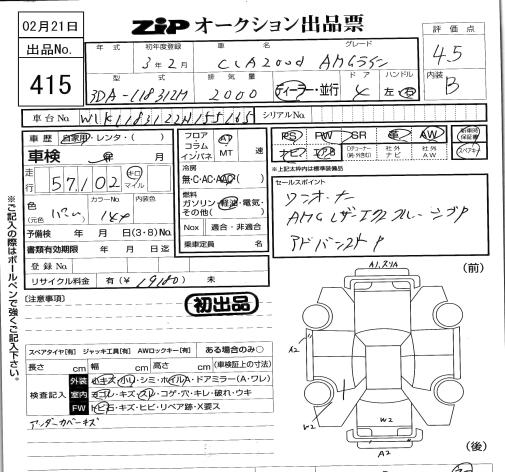 02月21日
出品No.
415
ZiP オークション出品票
評価点
4.5
内装
B
年式 初年度登録 車名 グレード
3年2月 CLA200d AMGライン
型式 排気量 ドア ハンドル
3DA-118312M 2000 ディーラー・並行 4 左・右
車台No. シリアルNo.
車歴 自家用・レンタ・( )
車検 年 月
走行 57,102 キロ マイル
色 (元色 ) カラーNo. 149 内装色
予備検 年 月 日(3・8)No.
書類有効期限 年 月 日迄
登録No.
リサイクル料金 有(¥ 19180) 未
フロア コラム インパネ AT MT 速
冷房 無・C・AC・AAC
燃料 ガソリン・軽油・電気・その他( )
Nox 適合・非適合
乗車定員 名
PS PW SR 革 AW 新車時保証書
ナビ エアB Dチョーナー(純・外別) 社外ナビ 社外AW スペアキー
※上記太枠内は標準装備品
セールスポイント
ワンオーナー
AMGレザーエクスクルーシブP
アドバンスドP
初出品
[注意事項]
スペアタイヤ[有] ジャッキ工具[有] AWロックキー[有] ある場合のみ○
長さ cm 幅 cm 高さ cm (車検証上の寸法)
検査記入
外装 小キズ・小U・シミ・ホイルA・ドアミラー(A・ワレ)
室内 ヨゴレ・キズ・スレ・コゲ・穴・キレ・破れ・ウキ
FW トビ石・キズ・ヒビ・リペア跡・X要ス
アンダーカバーキズ
※ご記入の際はボールペンで強くご記入下さい。
(前)
A1,スリA
A2
W2
W2
A2
(後)